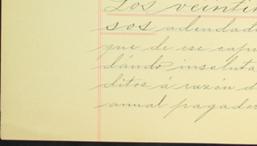 Los veinti
sos adeudad
que de ese capi
dándo insoluta
ditos á razón d
anual pagader